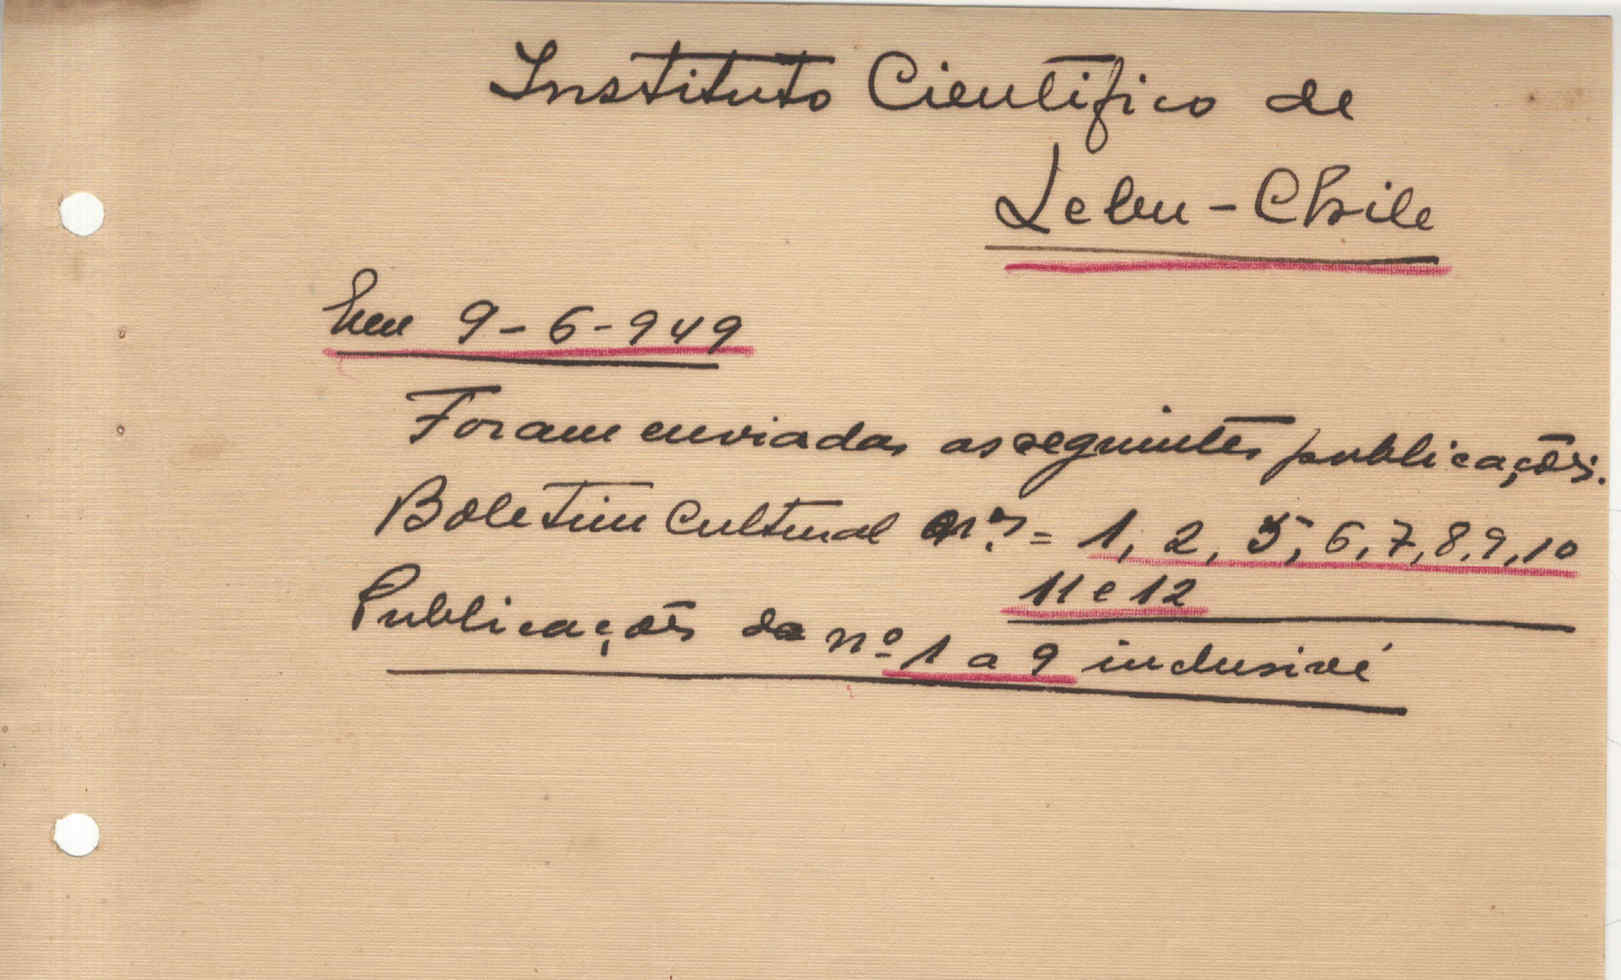 Instituto Cientifico de
Lebu - Chile
Em 9-6-949
Foram enviadas as seguintes publicações.
Boletim Cultural nº = 1, 2, 5, 6, 7, 8, 9, 10
11 e 12
Publicações do nº 1 a 9 inclusivé